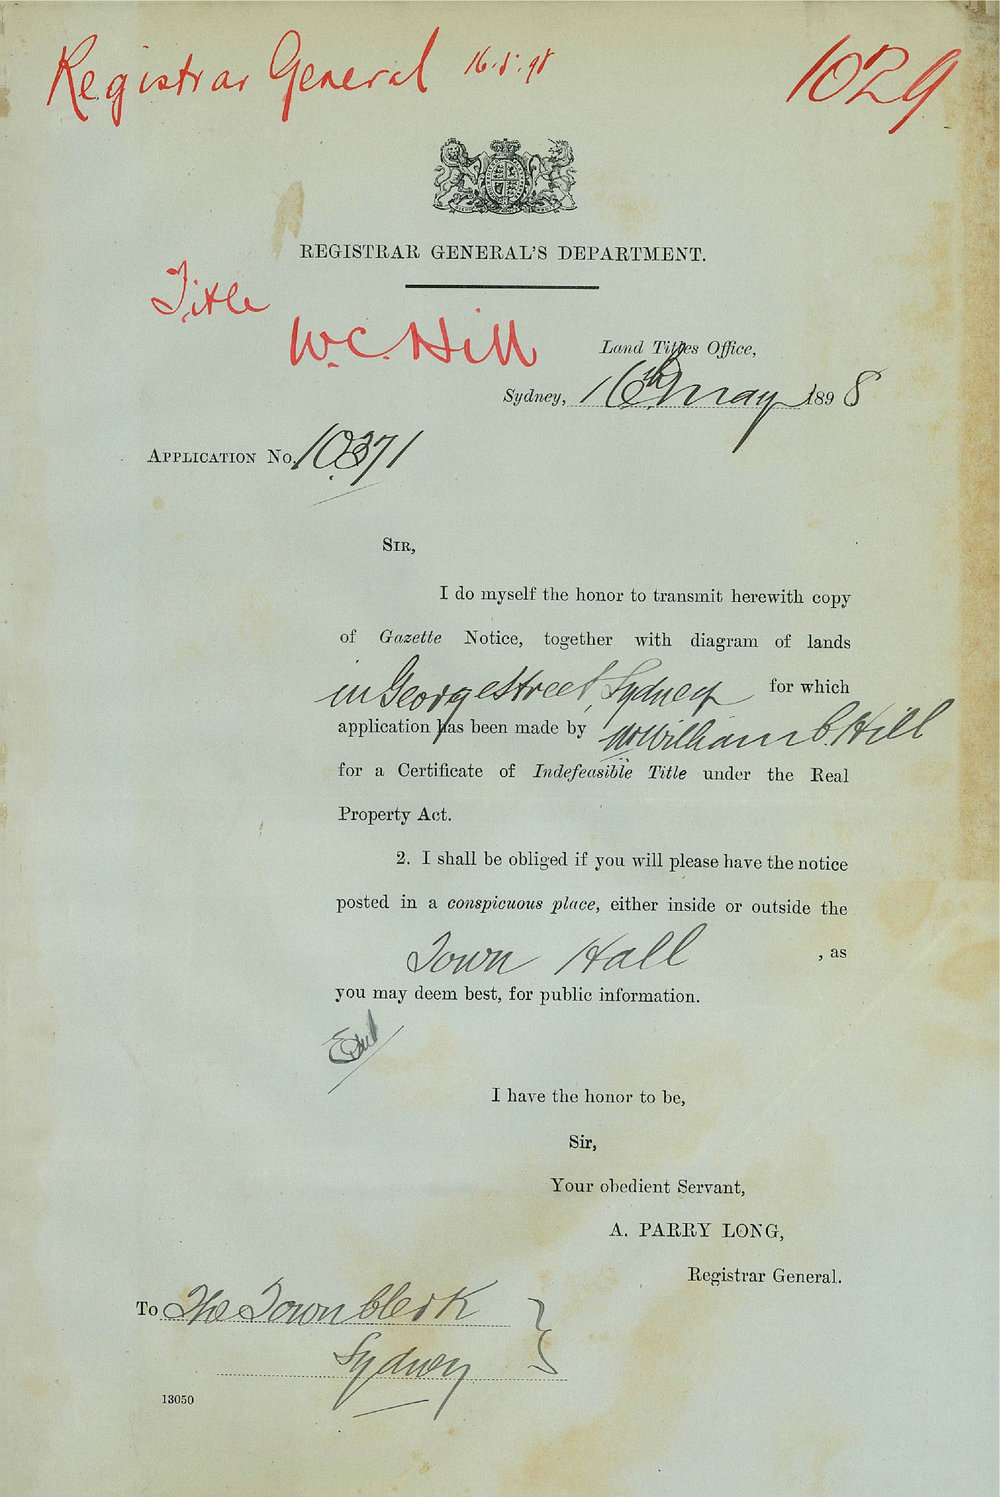 Registrar General 16.5.98 1029
REGISTRAR GENERAL'S DEPARTMENT.
Title
W.C. Hill
Land Titles Office,
Sydney, 16th May 1898
APPLICATION No. 10371
SIR,
I do myself the honor to transmit herewith copy
of Gazette Notice, together with diagram of lands
in George Street, Sydney for which
application has been made by Mr William C. Hill
for a Certificate of Indefeasible Title under the Real
Property Act.
2. I shall be obliged if you will please have the notice
posted in a conspicuous place, either inside or outside the
Town Hall , as
you may deem best, for public information.
I have the honor to be,
Sir,
Your obedient Servant,
A. PARRY LONG,
Registrar General.
To The Town Clerk
Sydney
13050